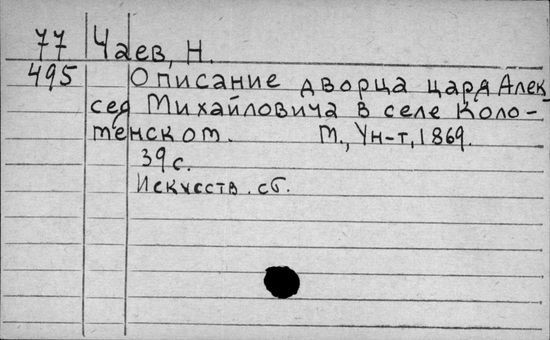 77 Чаев, Н.
495 Описание дворца царя Алек-
сея Михайловича в селе Коло-
менском. М., Ун-т, 1869.
39 с.
Искусств. сб.